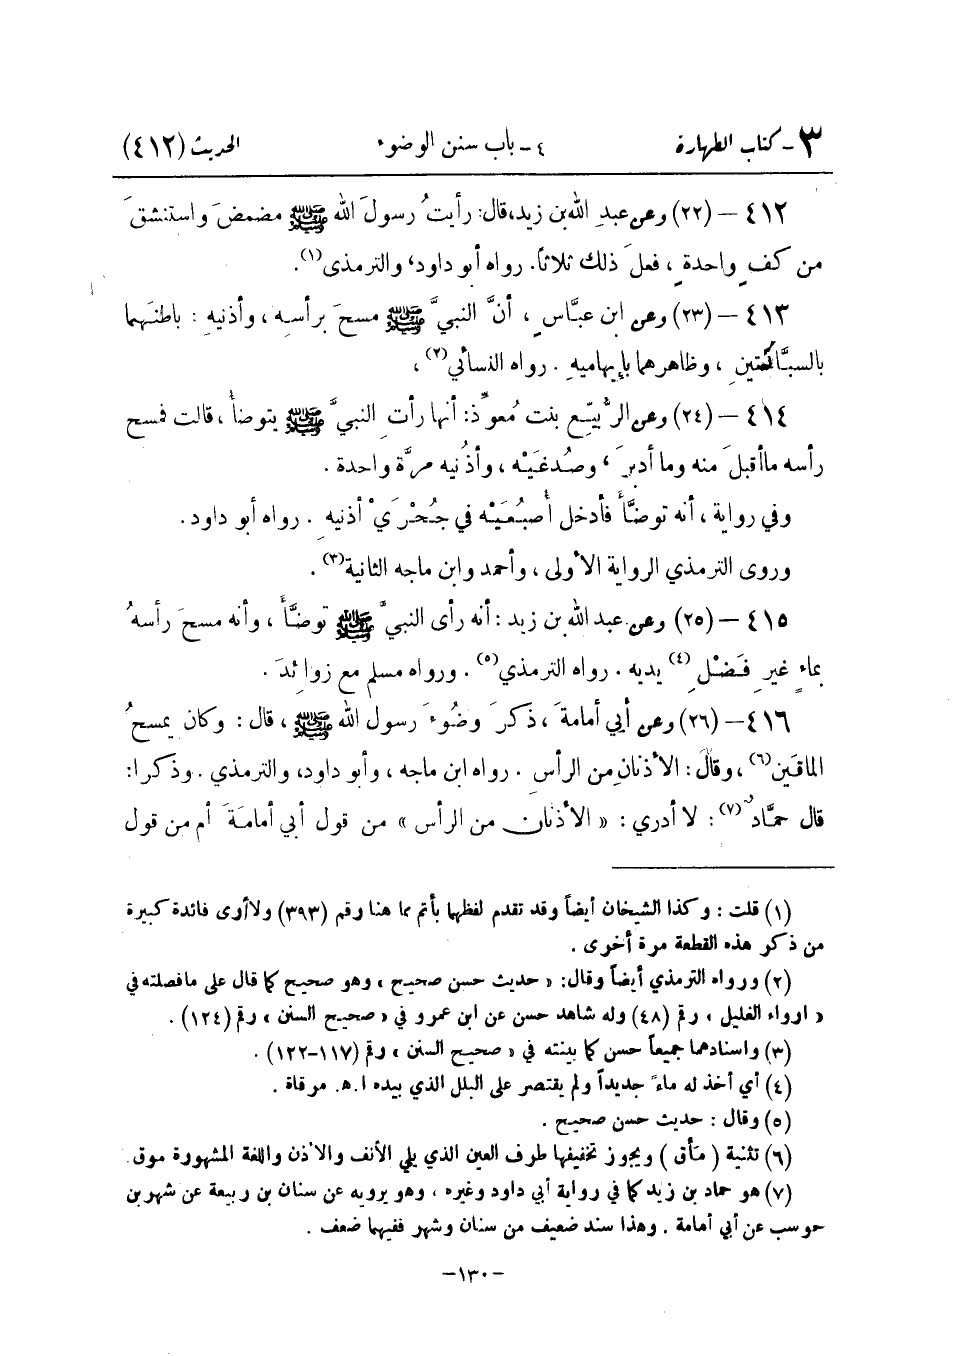 ٣ - كتاب الطهارة ٤ - باب سنن الوضوء الحديث (٤١٢)
٤١٢ - (٢٢) وعن عبدِ الله بن زيد،قال: رأيتُ رسولَ الله ﷺ مضمضَ واستنشقَ
من كفٍ واحدةٍ ، فعلَ ذلك ثلاثاً. رواه أبو داود، والترمذي(١).
٤١٣ - (٢٣) وعن ابن عبَّاسٍ ، أنَّ النبيَّ ﷺ مسحَ برأسِه ، وأذنيهِ : باطنَهما
بالسبَّاحتينِ ، وظاهرهما بإبهاميهِ . رواه النسائي(٢) ،
٤١٤ - (٢٤) وعن الرُّبيِّع بنت مُعوِّذ: أنها رأت النبيَّ ﷺ يتوضأ ، قالت فمسح
رأسه ماأقبلَ منه وما أدبرَ ، وصُدغَيْه ، وأذُنيه مرَّة واحدة .
وفي رواية ، أنه توضَّأَ فأدخل أُصبُعَيْه في جُحْرَيْ أذنيهِ . رواه أبو داود .
وروى الترمذي الرواية الأولى ، وأحمد وابن ماجه الثانية(٣) .
٤١٥ - (٢٥) وعن عبد الله بن زيد : أنه رأى النبيَّ ﷺ توضَّأَ ، وأنه مسحَ رأسهُ
بماءٍ غيرِ فَضْلِ (٤) يديه . رواه الترمذي(٥) . ورواه مسلم مع زوائدَ .
٤١٦ - (٢٦) وعن أبي أمامةَ ، ذكرَ وضُوءَ رسول الله ﷺ ، قال : وكان يمسحُ
الماقَين(٦) ، وقالَ : الأذنانِ من الرأسِ . رواه ابن ماجه ، وأبو داود، والترمذي . وذكرا:
قال حمَّاد(٧) : لا أدري : « الأذنان من الرأس » من قول أبي أمامَةَ أم من قول
(١) قلت : وكذا الشيخان أيضاً وقد تقدم لفظها بأتم مما هنا رقم (٣٩٣) ولاأرى فائدة كبيرة
من ذكر هذه القطعة مرة أخرى .
(٢) ورواه الترمذي أيضاً وقال: « حديث حسن صحيح » وهو صحيح كما قال على مافصلته في
« ارواء الغليل » رقم (٤٨) وله شاهد حسن عن ابن عمرو في « صحيح السنن » رقم (١٢٤) .
(٣) واسنادهما جميعاً حسن كما بينته في « صحيح السنن » رقم (١١٧-١٢٢) .
(٤) أي أخذ له ماءً جديداً ولم يقتصر على البلل الذي بيده ا.ه. مرقاة .
(٥) وقال : حديث حسن صحيح .
(٦) تثنية ( مأق ) ويجوز تخفيفها طرف العين الذي يلي الأنف والأذن واللغة المشهورة موق .
(٧) هو حماد بن زيد كما في رواية أبي داود وغيره ، وهو يرويه عن سنان بن ربيعة عن شهر بن
حوسب عن أبي أمامة . وهذا سند ضعيف من سنان وشهر ففيهما ضعف .
-١٣٠-